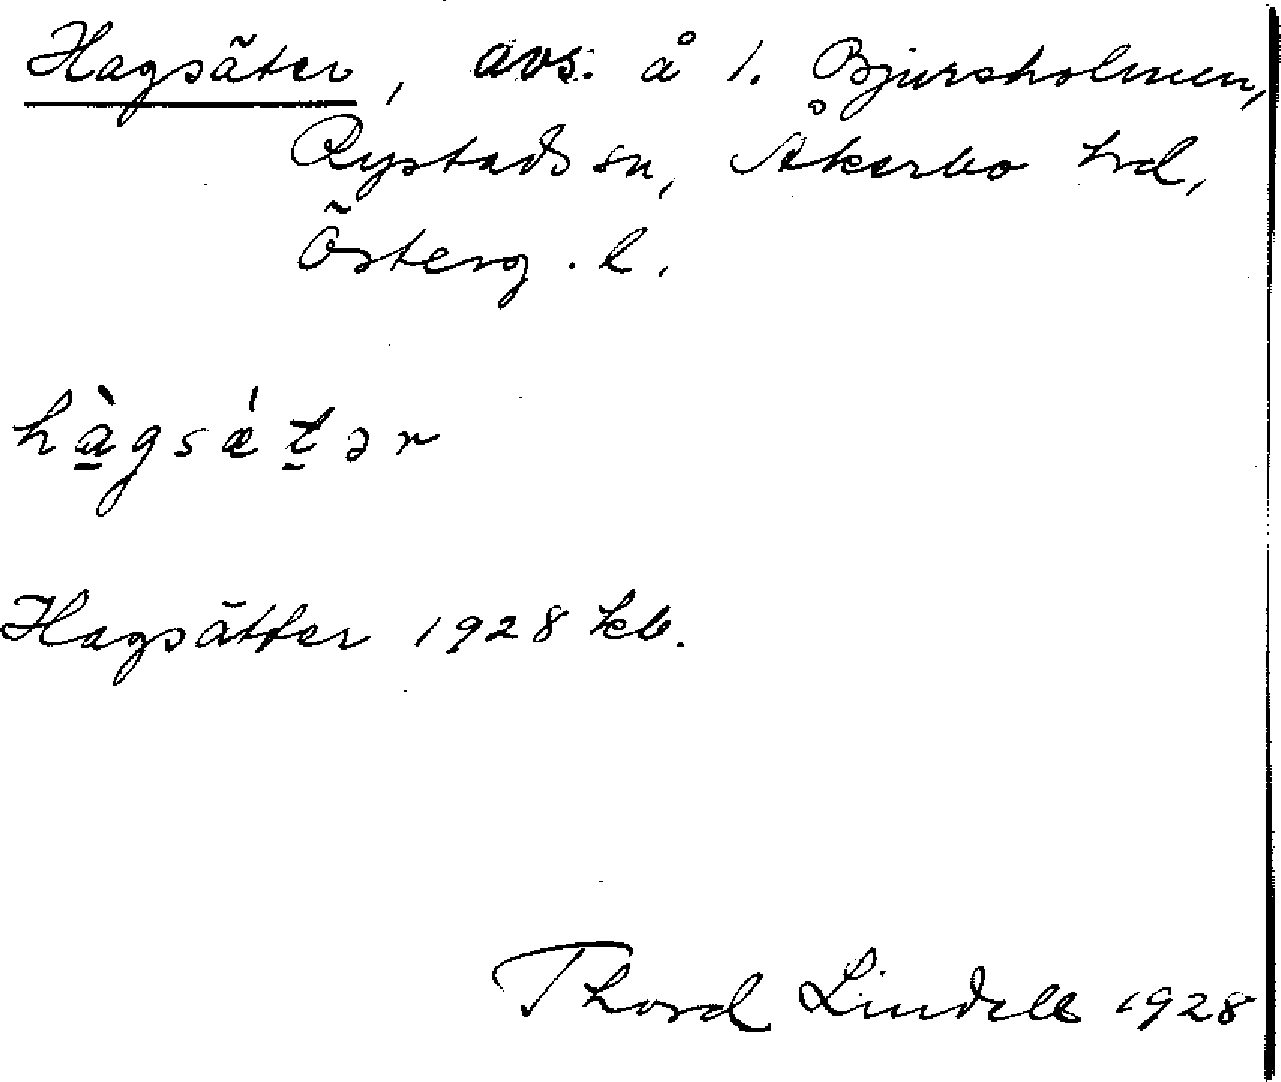 Hagsäter, avs. å 1. Bjursholmen,
Rystads sn, Åkerbo hd,
Österg. l.
hàgsǽtər
Hagsätter 1928 kb.
Thord Lindell 1928